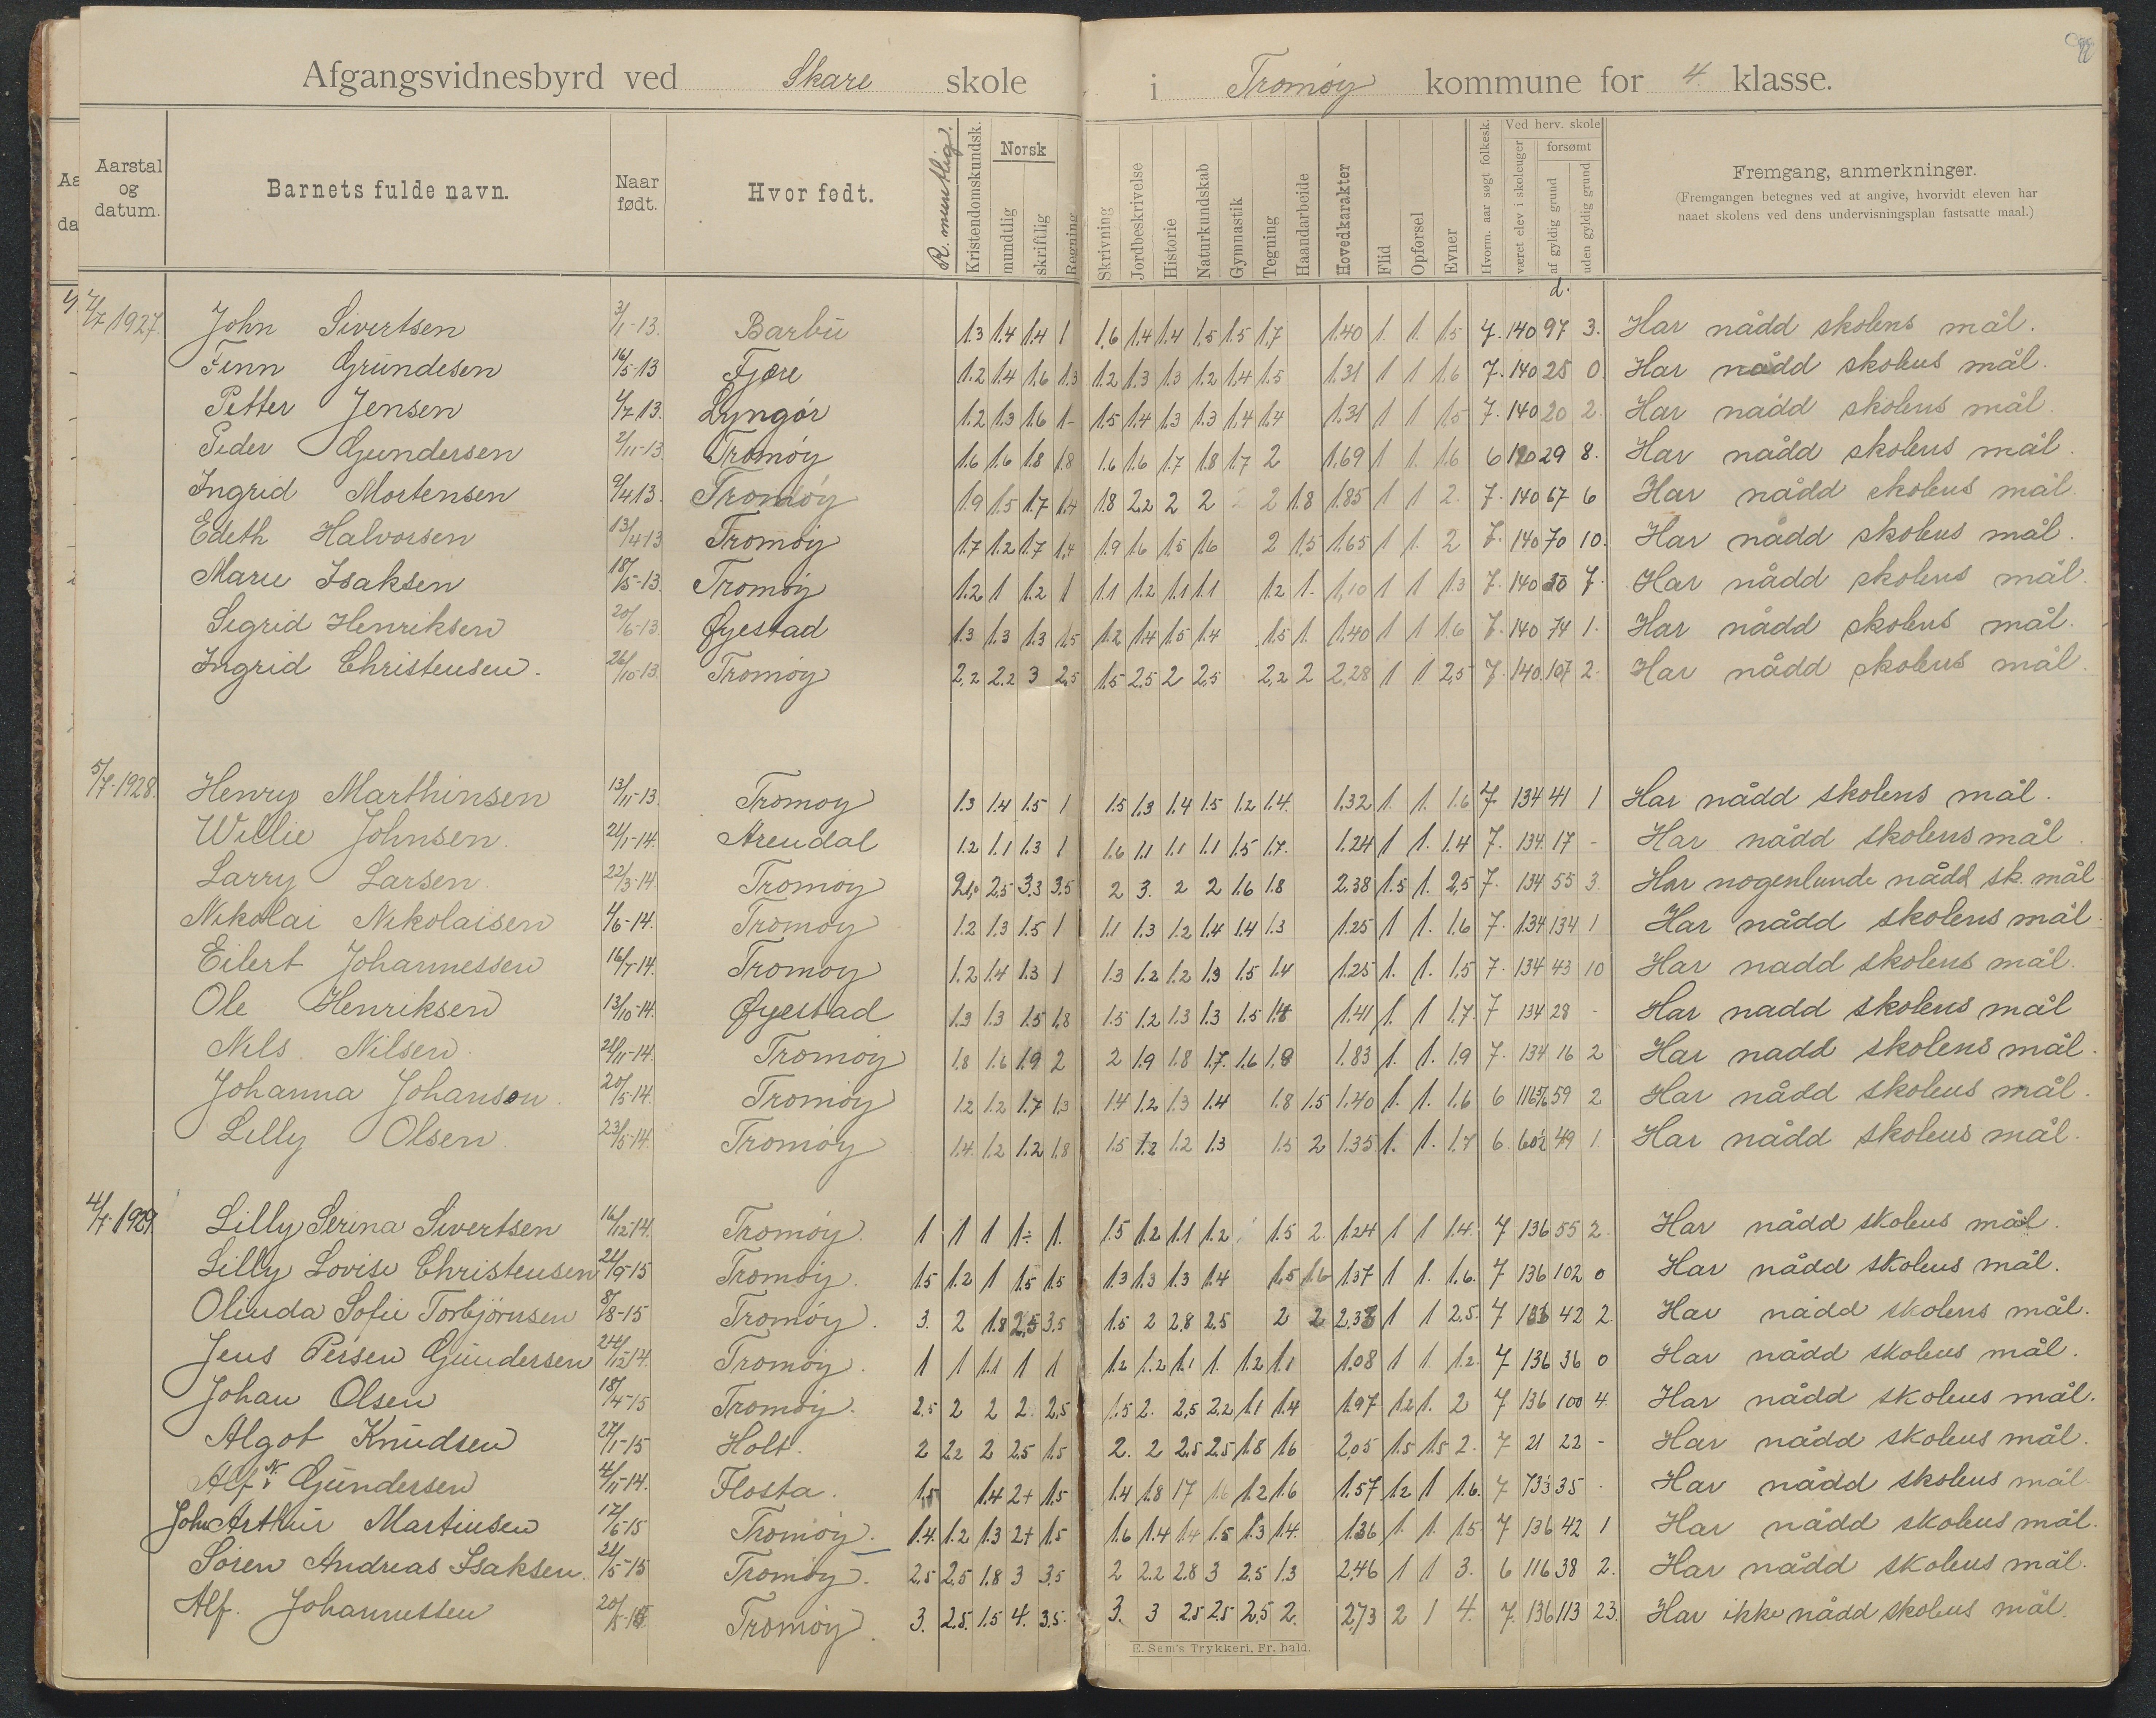 Afgangsvidnesbyrd ved Skare skole i Tromøy kommune for 4. klasse.
Aarstal og datum. Barnets fulde navn. Naar født. Hvor født. R. muntlig. Kristendomskundsk. Norsk mundtlig skriftlig Regning Skrivning Jordbeskrivelse Historie Naturkundskab Gymnastik Tegning Haandarbeide Hovedkarakter Flid Opførsel Evner Hvorm. aar søgt folkesk. Ved herv. skole været elev i skoleuger forsømt af gyldig grund uden gyldig grund Fremgang, anmerkninger.
(Fremgangen betegnes ved at angive, hvorvidt eleven har
naaet skolens ved dens undervisningsplan fastsatte maal.)
d.
4/7 1927. John Sivertsen 3/1-13. Barbu 1.3 1.4 1.4 1 1.6 1.4 1.4 1.5 1.5 1.7 1.40 1. 1. 1.5 7. 140 97 3. Har nådd skolens mål.
Finn Grundesen 16/5-13 Fjære 1.2 1.4 1.6 1.3 1.2 1.3 1.3 1.2 1.4 1.5 1.31 1 1 1.6 7. 140 25 0. Har nådd skolens mål.
Petter Jensen 4/7 13. Lyngør 1.2 1.3 1.6 1- 1.5 1.4 1.3 1.3 1.4 1.4 1.31 1 1 1.5 7. 140 20 2. Har nådd skolens mål.
Peder Gundersen 2/11-13 Tromøy 1.6 1.6 1.8 1.8 1.6 1.6 1.7 1.8 1.7 2 1.69 1 1. 1.6 6 120 29 8. Har nådd skolens mål.
Ingrid Mortensen 9/4 13. Tromøy 1.9 1.5 1.7 1.4 1.8 2.2 2 2 2 2 1.8 1.85 1 1 2. 7. 140 67 6 Har nådd skolens mål.
Edeth Halvorsen 13/4 13 Tromøy 1.7 1.2 1.7 1.4 1.9 1.6 1.5 1.6 2 1.5 1.65 1 1. 2 7. 140 70 10. Har nådd skolens mål.
Marie Isaksen 18/5-13. Tromøy 1.2 1 1.2 1 1.1 1.2 1.1 1.1 1.2 1. 1.10 1 1 1.3 7. 140 30 7. Har nådd skolens mål.
Sigrid Henriksen 20/6-13. Øyestad 1.3 1.3 1.3 1.5 1.2 1.4 1.5 1.4 1.5 1. 1.40 1 1 1.6 7. 140 74 1. Har nådd skolens mål.
Ingrid Christensen. 26/10-13. Tromøy 2.2 2.2 3 2.5 1.5 2.5 2 2.5 2.2 2 2.28 1 1 2.5 7. 140. 107 2. Har nådd skolens mål.
5/7-1928. Henry Marthinsen 13/11-13. Tromøy 1.3 1.4 1.5 1 1.5 1.3 1.4 1.5 1.2 1.4. 1.32 1. 1. 1.6 7 134 41 1 Har nådd skolens mål.
Willie Johnsen. 21/1-14. Arendal 1.2 1.1 1.3 1 1.6 1.1 1.1 1.1 1.5 1.7. 1.24 1 1. 1.4 7. 134. 17 - Har nådd skolens mål.
Larry Larsen. 22/3-14. Tromøy 2.5 3.3 3.5 2 3. 2 2 1.6 1.8 2.38 1.5 1. 2.5 7. 134 55 3. Har nogenlunde nådd sk. mål
Nikolai Nikolaisen 4/6-14. Tromøy 1.2 1.3 1.5 1 1.1 1.3 1.2 1.4 1.4 1.3 1.25 1 1. 1.6 7. 134 134 1 Har nådd skolens mål.
Eilert Johannessen 16/7-14. Tromøy 1.2 1.4 1.3 1 1.3 1.2 1.2 1.3 1.5 1.4 1.25 1. 1. 1.5 7. 134 43 10 Har nadd skolens mål.
Ole Henriksen 13/10-14. Øyestad 1.3 1.3 1.5 1.8 1.5 1.2 1.3 1.3 1.5 1.8 1.41 1. 1 1.7. 7 134 28 - Har nadd skolens mål
Nils Nilsen. 21/11-14. Tromøy 1.8 1.6 1.9 2 2 1.9 1.8 1.7. 1.6 1.8 1.83 1. 1. 1.9 7. 134 16 2 Har nadd skolens mål.
Johanna Johanson. 20/5-14. Tromøy 1.2 1.2 1.7 1.3 1.4 1.2 1.3 1.4 1.8 1.5 1.40 1. 1. 1.6 6 59 2 Har nådd skolens mål.
Lilly Olsen 23/5-14. Tromøy 1.4. 1.2 1.2 1.8 1.5 1.2 1.2 1.3 1.5 2 1.35 1. 1. 1.7 6. 49 1. Har nådd skolens mål.
4/7-1929 Lilly Serina Sivertsen 16/12-14. Tromøy. 1 1 1 1÷ 1. 1.5 1.2 1.1 1.2 1.5 2. 1.24 1 1 1.4. 7 136 55 2. Har nådd skolens mål.
Lilly Lovise Christensen 21/9-15 Tromøy. 1.5 1.2 1 1.5 1.5 1.3 1.3 1.3 1.4 1.5 1.6 1.37 1 1. 1.6. 7 136 102 0 Har nådd skolens mål.
Olinda Sofie Torbjörnsen 8/8-15 Tromøy. 3. 2 1.8 2.5 3.5 1.5 2 2.8 2.5 2 2 1 1 2.5. 7 136 42 2. Har nådd skolens mål.
Jens Persen Gundersen 24/12-14. Tromøy. 1 1 1.1 1 1 1.2 1.2 1.1 1. 1.2 1.1 1.08 1 1. 1.2. 7 136 36 0 Har nådd skolens mål.
Johan Olsen 18/4-15 Tromøy. 2.5 2 2 2. 2.5 1.5 2. 2.5 2.2 1.1 1.4 1.97 1.2 1. 2 7 136 100 4. Har nådd skolens mål.
Algot Knudsen 27/1-15 Holt. 2 2.2 2 2.5 1.5 2. 2 2.5 2.5 1.8 1.6 2.05 1.5 1.5 2. 7 21 22 - Har nådd skolens mål.
Alf N. Gundersen 4/11-14. Flosta. 1.5 1.4 2+ 1.5 1.4 1.8 1.7 1.6 1.2 1.6 1.57 1.2 1 1.6. 7 133 35 - Har nådd skolens mål
John Arthur Martinsen 17/6-15 Tromøy. 1.4. 1.2 1.3 2+ 1.5 1.6 1.4 1.4 1.5 1.3 1.4. 1.36 1. 1. 1.5 7 136 42 1 Har nådd skolens mål.
Sören Andreas Isaksen. 21/5-15 Tromøy. 2.5 2.5 1.8 3 3.5 2 2.2 2.8 3 2.5 1.3 2.46 1 1 3. 6 116 38 2. Har nådd skolens mål.
Alf. Johannessen Tromøy. 3. 2.5. 1.5 4. 3.5. 3. 3 2.5 2.5 2.5 2. 2.73 2 1 4. 7. 136 113 23. Har ikke nådd skolens mål.
E. Sem's Trykkeri, Fr. hald.